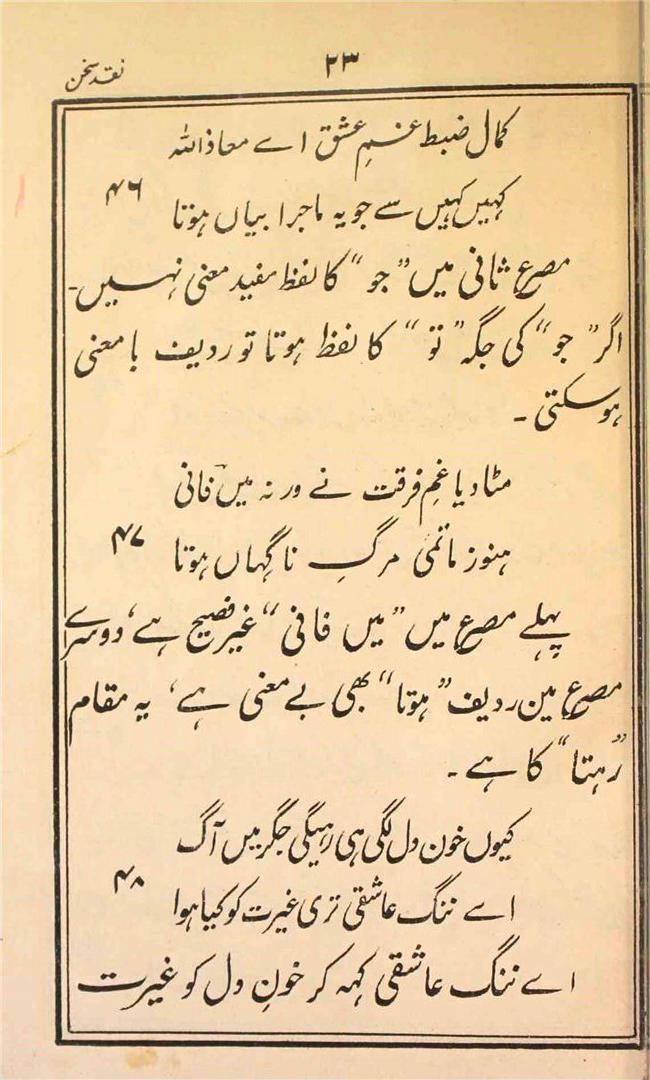 نقد سخن
۲۳
کمال ضبط غمِ عشق اے معاذ اللہ
۴۶
کہیں کہیں سے جو یہ ماجرا بیاں ہوتا
مصرع ثانی میں ”جو“ کا لفظ مفید معنی نہیں۔
اگر ”جو“ کی جگہ ”تو“ کا لفظ ہوتا تو ردیف با معنی
ہو سکتی ۔
مٹا دیا غمِ فرقت نے ورنہ میں فانی
۴۷
ہنوز ماتمیٔ مرگِ ناگہاں ہوتا
پہلے مصرع میں ”میں فانی“ غیر فصیح ہے، دوسرے
مصرع مین ردیف ”ہوتا“ بھی بے معنی ہے، یہ مقام
”رہتا“ کا ہے ۔
کیوں خون دل لگی ہی رہیگی جگر میں آگ
۴۸
اے ننگ عاشقی تری غیرت کو کیا ہوا
اے ننگ عاشقی کہہ کر خونِ دل کو غیرت